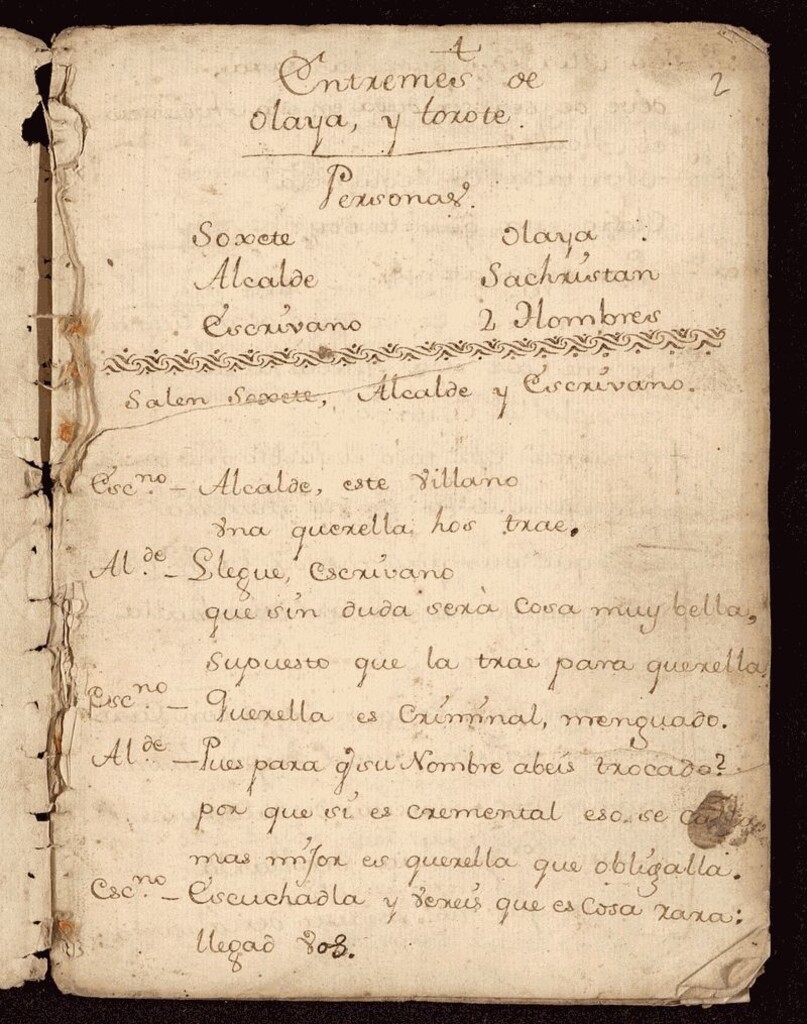 4
2
Entremes de
olaya, y torote.
Personas.
Soxete olaya :
Alcalde Sachristan
Escrivano 2 Hombres
Salen Soxete, Alcalde y Escrivano.
Esc.no – Alcalde, este villano
vna querella hos trae.
Al.de – Llegue, escrivano
que sin duda serà cosa muy bella,
supuesto que la trae para querella
Esc.no – Querella es Criminal, menguado.
Al.de – Pues para q su Nombre abeis trocado?
por que si es cremental eso se
mas mijor es querella que obligalla.
Esc.no – Escuchadla y vereis que es Cosa rara:
llegad vos.